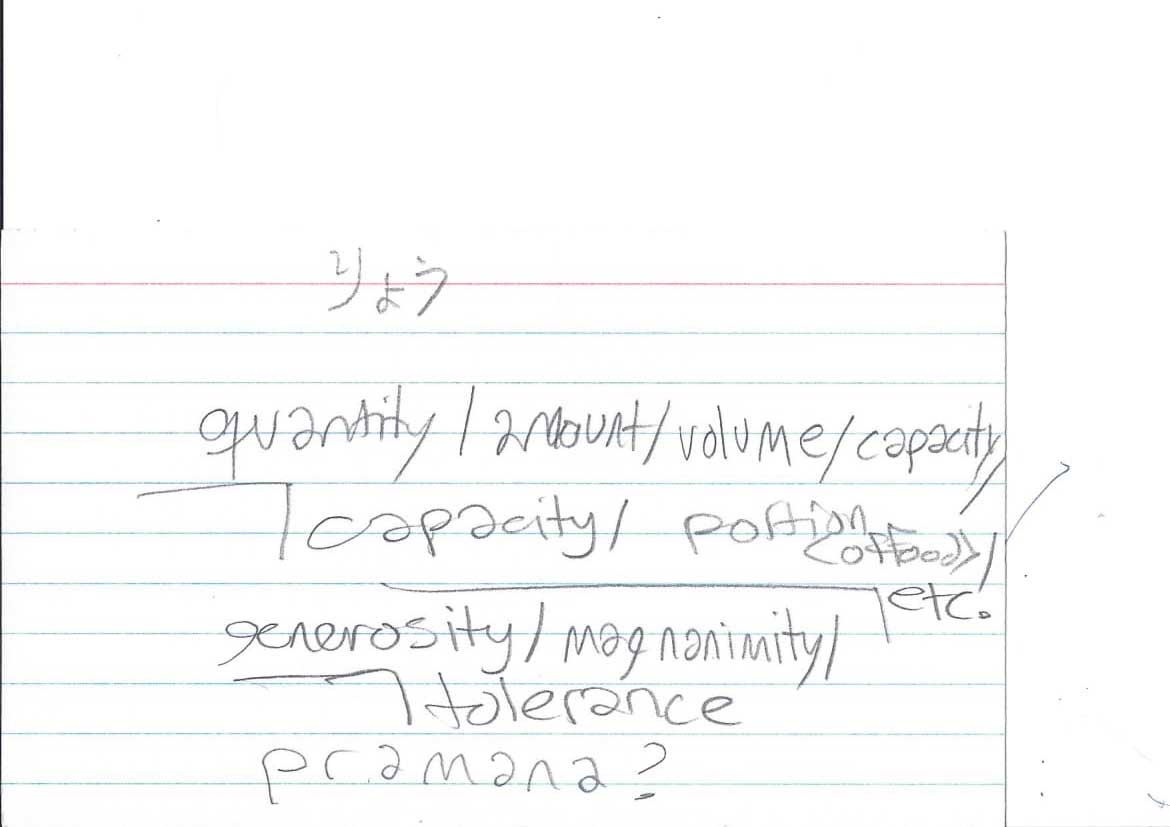 りょう
quantity/amount/volume/capacity/
capacity/ portion <of food>/
etc.
generosity/magnanimity/
tolerance
pramana?